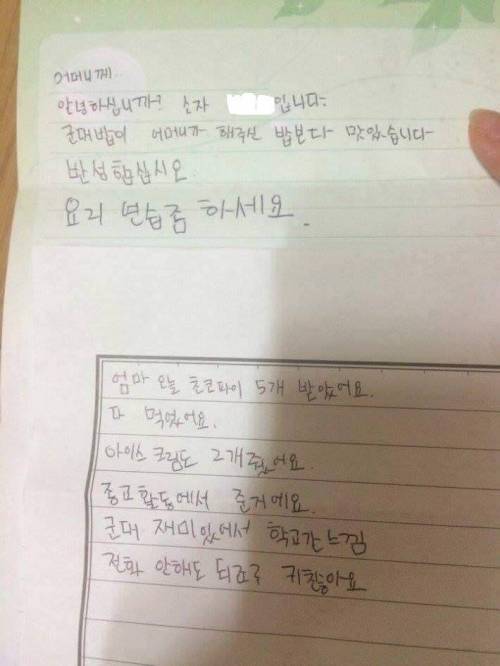 어머니께..
안녕하십니까? 소자 입니다.
군대밥이 어머니가 해주신 밥보다 맛있습니다
반성합십시오
요리 연습좀 하세요.
엄마 오늘 초코파이 5개 받았어요.
다 먹었어요.
아이스크림도 2개줬어요.
종교활동에서 준거에요.
군대 재미있어서 학교간느낌
전화 안해도 되죠? 귀찮아요